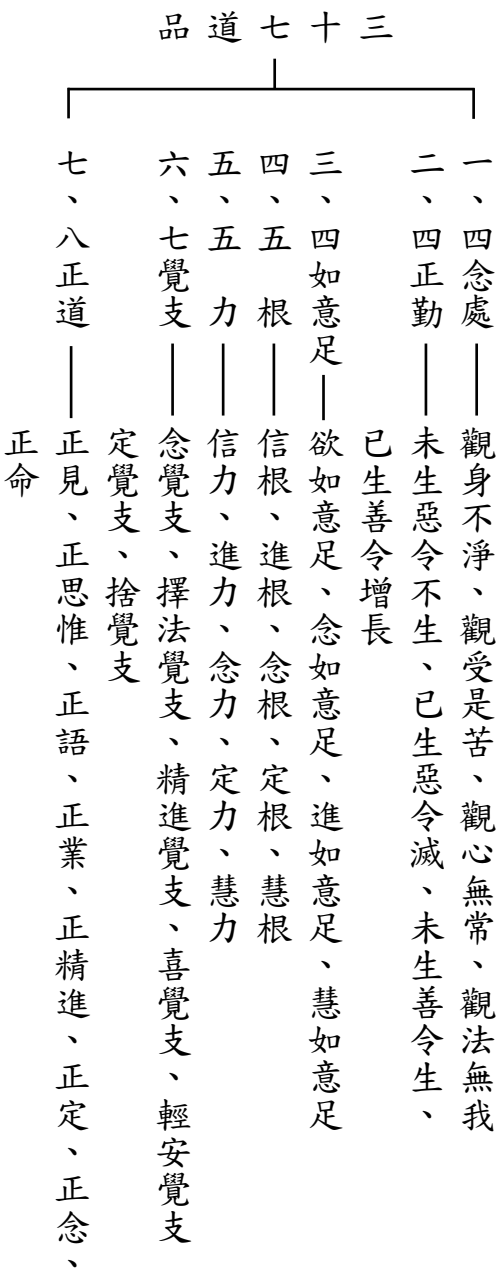 三十七道品
一、四念處——觀身不淨、觀受是苦、觀心無常、觀法無我
二、四正勤——未生惡令不生、已生惡令滅、未生善令生、
已生善令增長
三、四如意足—欲如意足、念如意足、進如意足、慧如意足
四、五根——信根、進根、念根、定根、慧根
五、五力——信力、進力、念力、定力、慧力
六、七覺支——念覺支、擇法覺支、精進覺支、喜覺支、輕安覺支
定覺支、捨覺支
七、八正道——正見、正思惟、正語、正業、正精進、正定、正念、
正命